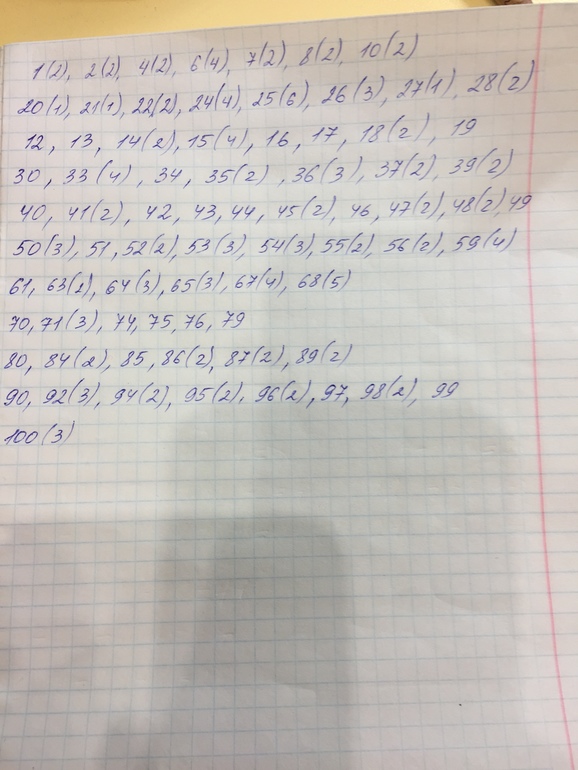 1(2), 2(2), 4(2), 6(4), 7(2), 8(2), 10(2)
20(1), 21(1), 22(2), 24(4), 25(6), 26(3), 27(1), 28(2)
12, 13, 14(2), 15(4), 16, 17, 18(2), 19
30, 33(4), 34, 35(2), 36(3), 37(2), 39(2)
40, 41(2), 42, 43, 44, 45(2), 46, 47(2), 48(2), 49
50(3), 51, 52(2), 53(3), 54(3), 55(2), 56(2), 59(4)
61, 63(2), 64(3), 65(3), 67(4), 68(5)
70, 71(3), 74, 75, 76, 79
80, 84(2), 85, 86(2), 87(2), 89(2)
90, 92(3), 94(2), 95(2). 96(2), 97, 98(2), 99
100(3)